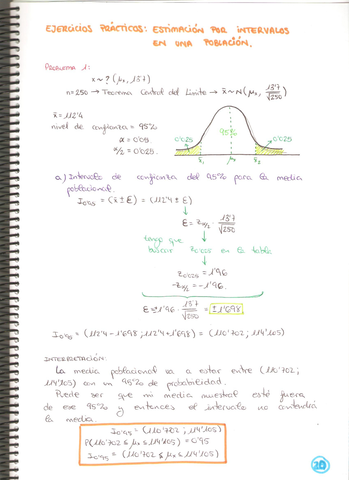 EJERCICIOS PRÁCTICOS: ESTIMACIÓN POR INTERVALOS
EN UNA POBLACIÓN.
PROBLEMA 1:
x ~ ? (μx, 13'7)
n=250 → Teorema Central del Límite → x̄ ~ N(μx, 13'7/√250)
x̄ = 112'4
nivel de confianza = 95%
α = 0'05
α/2 = 0'025
0'025 95% 0'025
μx
a) Intervalo de confianza del 95% para la media
poblacional.
I0'95 = (x̄ ± E) = (112'4 ± E)
E = Zα/2 · 13'7/√250
tengo que
buscar Z0'025 en la tabla
Z0'025 = 1'96
-Zα/2 = -1'96
E = 1'96 · 13'7/√250 = ±1'698
I0'95 = (112'4 - 1'698 ; 112'4 + 1'698) = (110'702 ; 114'105)
INTERPRETACIÓN:
La media poblacional va a estar entre (110'702;
114'105) con un 95% de probabilidad.
Puede ser que mi media muestral esté fuera
de ese 95% y entonces el intervalo no contendrá
la media.
I0'95 = (110'702 ; 114'105)
P(110'702 ≤ μx ≤ 114'105) = 0'95
I0'95 = (110'702 ≤ μx ≤ 114'105)
20